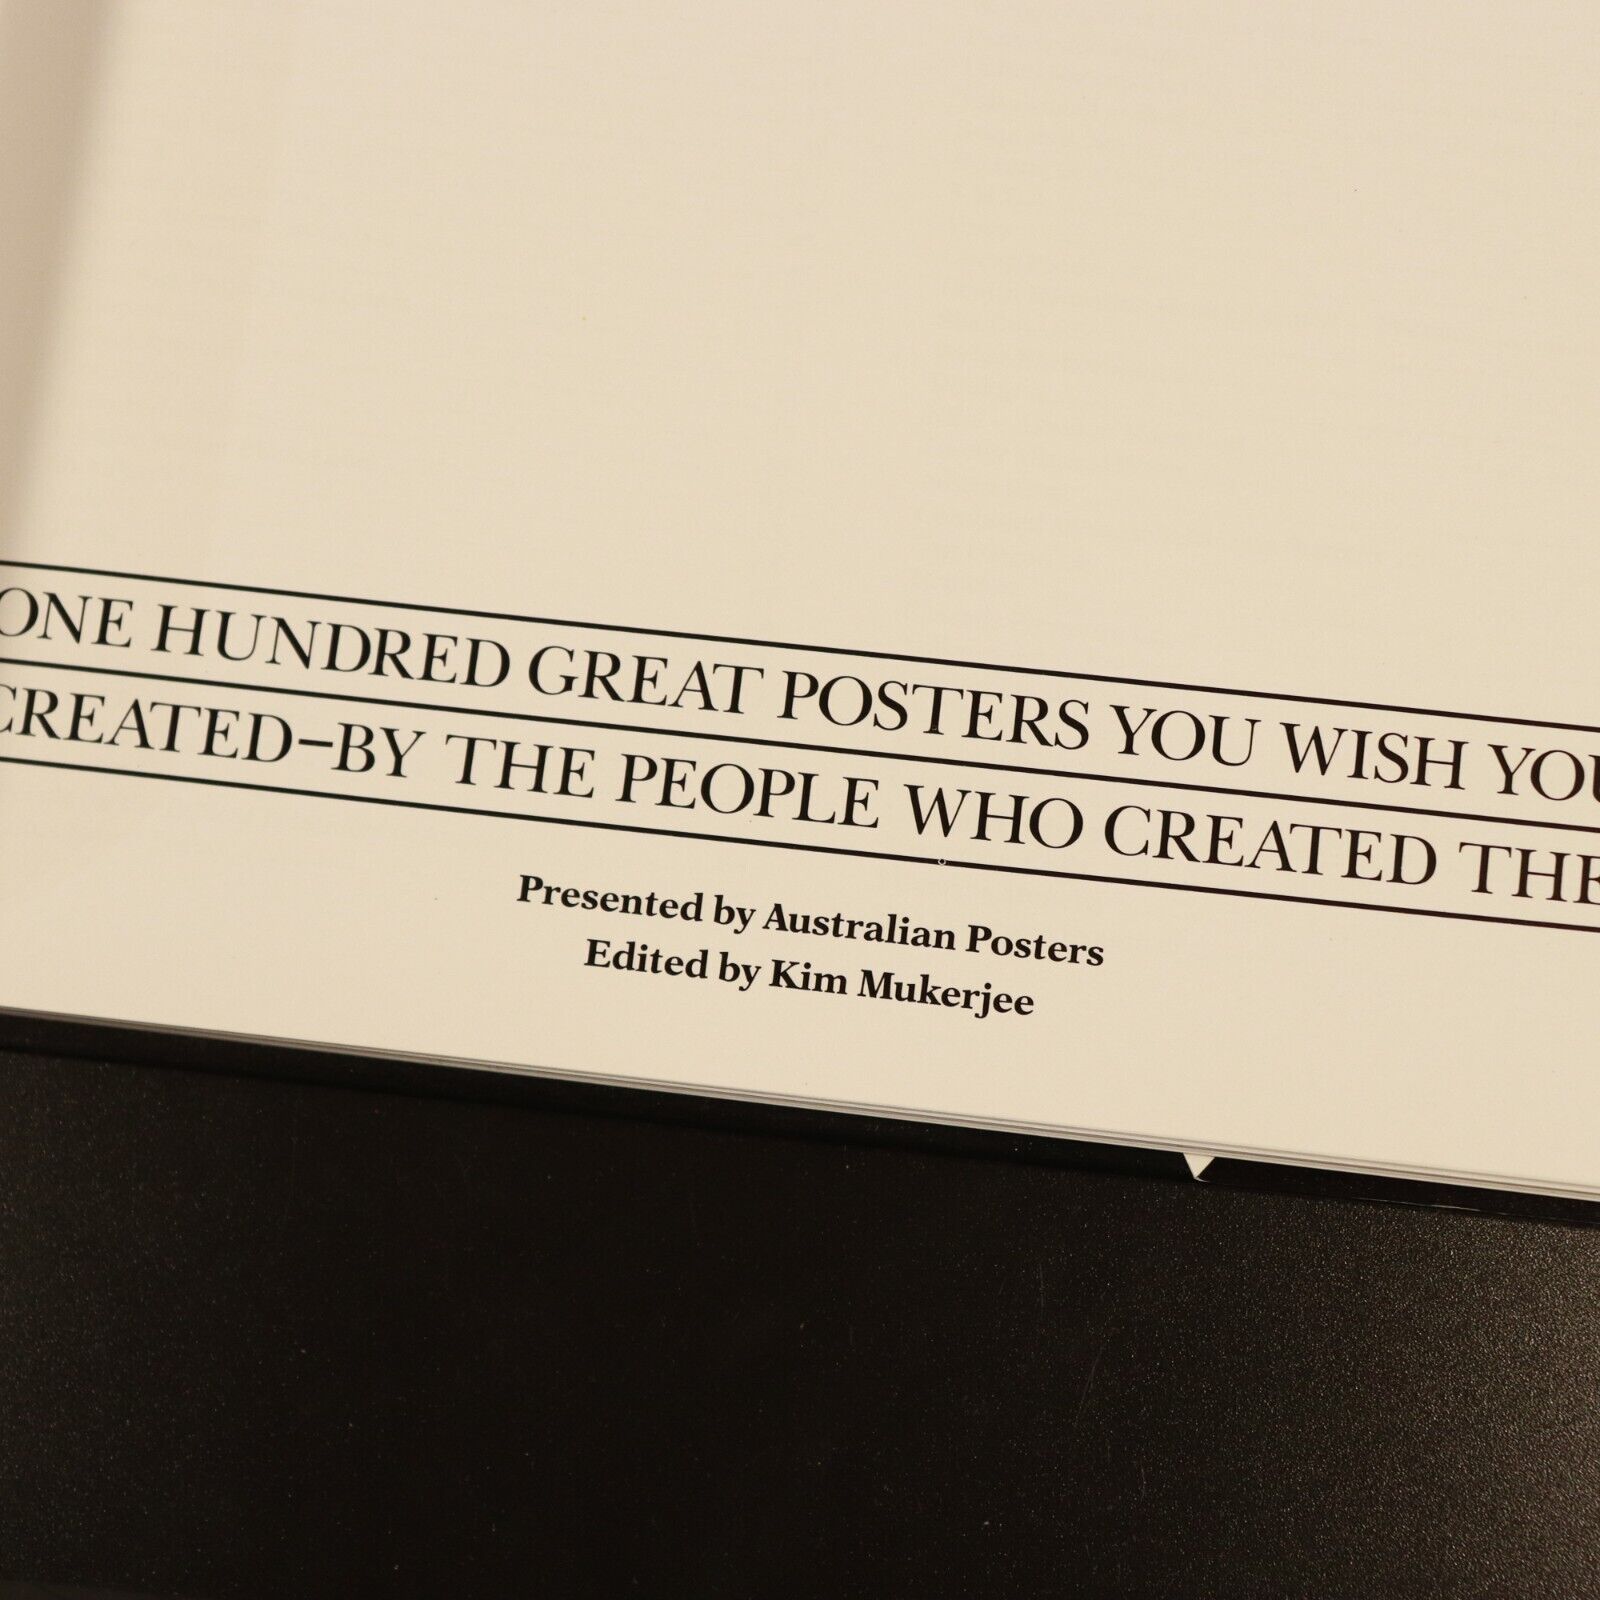 ONE HUNDRED GREAT POSTERS YOU WISH YOU
CREATED–BY THE PEOPLE WHO CREATED THE
Presented by Australian Posters
Edited by Kim Mukerjee